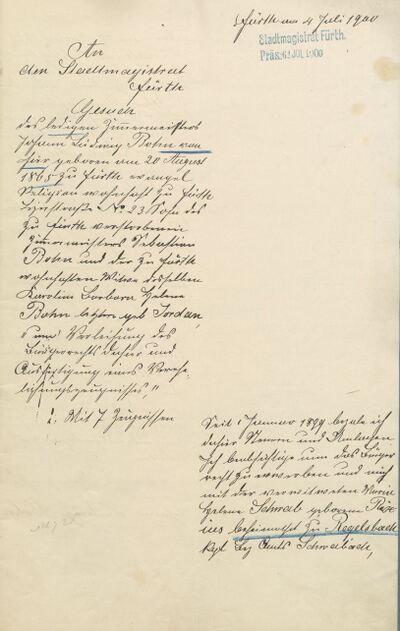 Fürth am 4 Juli 1900
Stadtmagistrat Fürth.
Präs. JUL 1900
An
den Stadtmagistrat
Fürth
Gesuch
des ledigen Zimmermeisters
Johann Ludwig Bohn von
hier geboren am 20 August
1865 zu Fürth evangel
Religion wohnhaft zu Fürth
No 23 Sohn des
zu Fürth verstorbenen
Zimmermeisters Sebastian
Bohn und der zu Fürth
wohnhaften Witwe desselben
Karolina Barbara Helena
Bohn letztere geb Jordan,
um Verleihung des
Bürgerrechts dahier und
Ausfertigung eines Verehe-
lichungszeugnisses,"
Mit 7 Zeugnissen
Seit 1 Januar 1899 bezale ich
dahier Steuern und Umlagen
Ich beabsichtige nun das Bürger
recht zu erwerben und mich
mit der verwitweten Maria
Helena Schwab geborene
beheimathet zu Regelsbach
Kgl Bez Amts Schwabach,